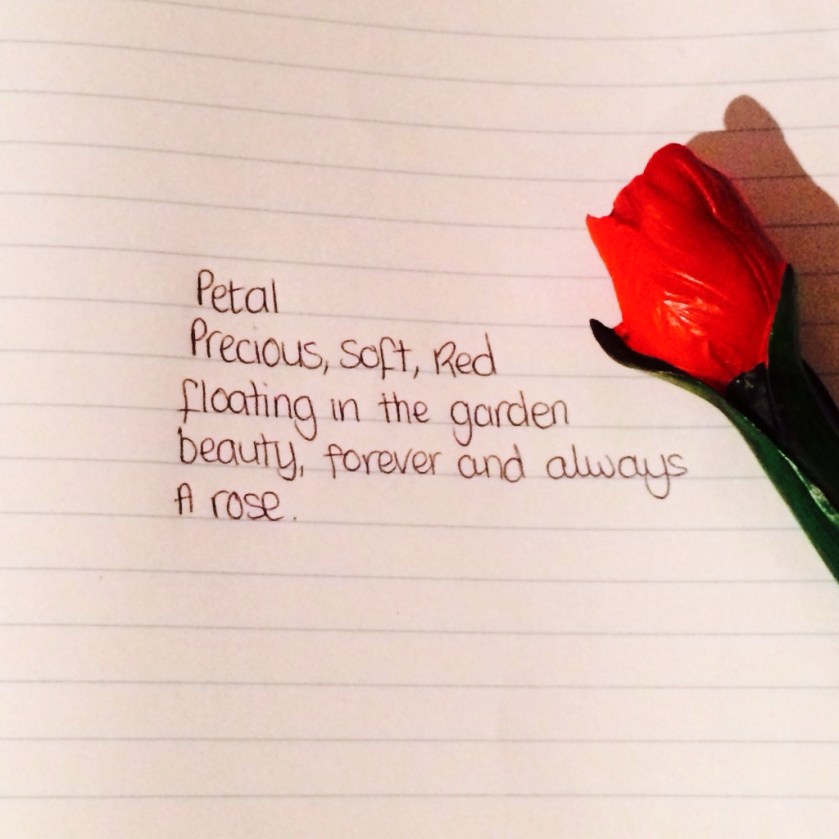 Petal
Precious, Soft, Red
floating in the garden
beauty, forever and always
A rose.